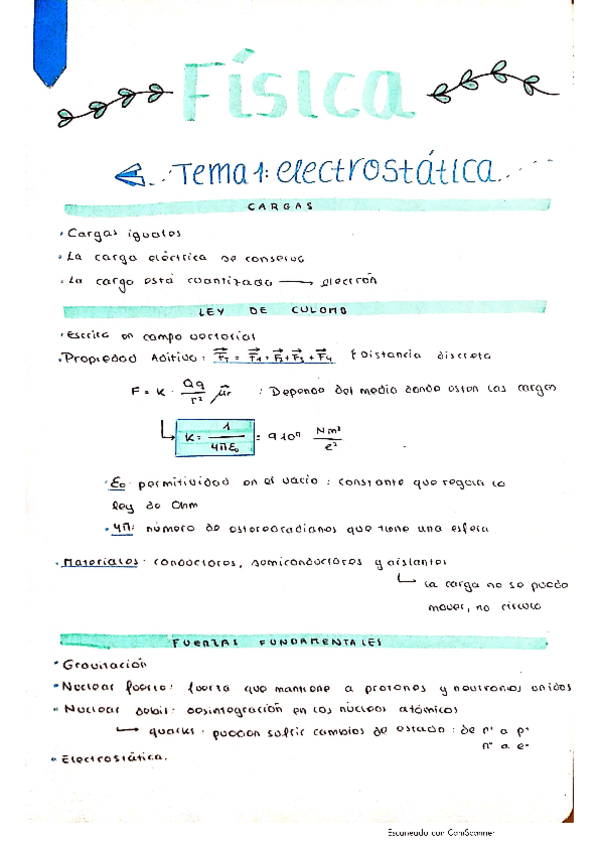 Física
Tema 1: electrostática
CARGAS
· Cargas iguales
· La carga eléctrica se conserva
· La carga está cuantizada → electrón
LEY DE CULOMB
· Escrita en campo vectorial
· Propiedad Aditiva: F⃗T = F⃗1 + F⃗2 + F⃗3 + F⃗4 Distancia discreta
F = K · Qq / r² μ⃗r : Depende del medio donde esten las cargas
K = 1 / 4πε₀ = 9·10⁹ Nm² / e²
· ε₀ permitividad en el vacío : constante que regula la
ley de Ohm
· 4π: número de estereoradianes que tiene una esfera
· Materiales · conductores, semiconductores y aislantes
la carga no se puede
mover, no circula
FUERZAS FUNDAMENTALES
· Gravitación
· Nuclear fuerte: fuerza que mantiene a protones y neutrones unidos
· Nuclear debil: desintegración en los núcleos atómicos
→ quarks · pueden sufrir cambios de estado : de n⁺ a p⁺
n⁺ a e⁻
· Electrostática.
Escaneado con CamScanner